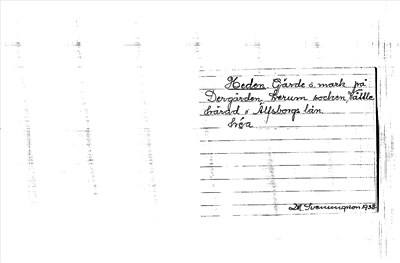 Heden. Gärde o. mark på
Dergården, Lerum socken, Vättle
härad i Älfsborgs län
héa
M. Svenungson 1938